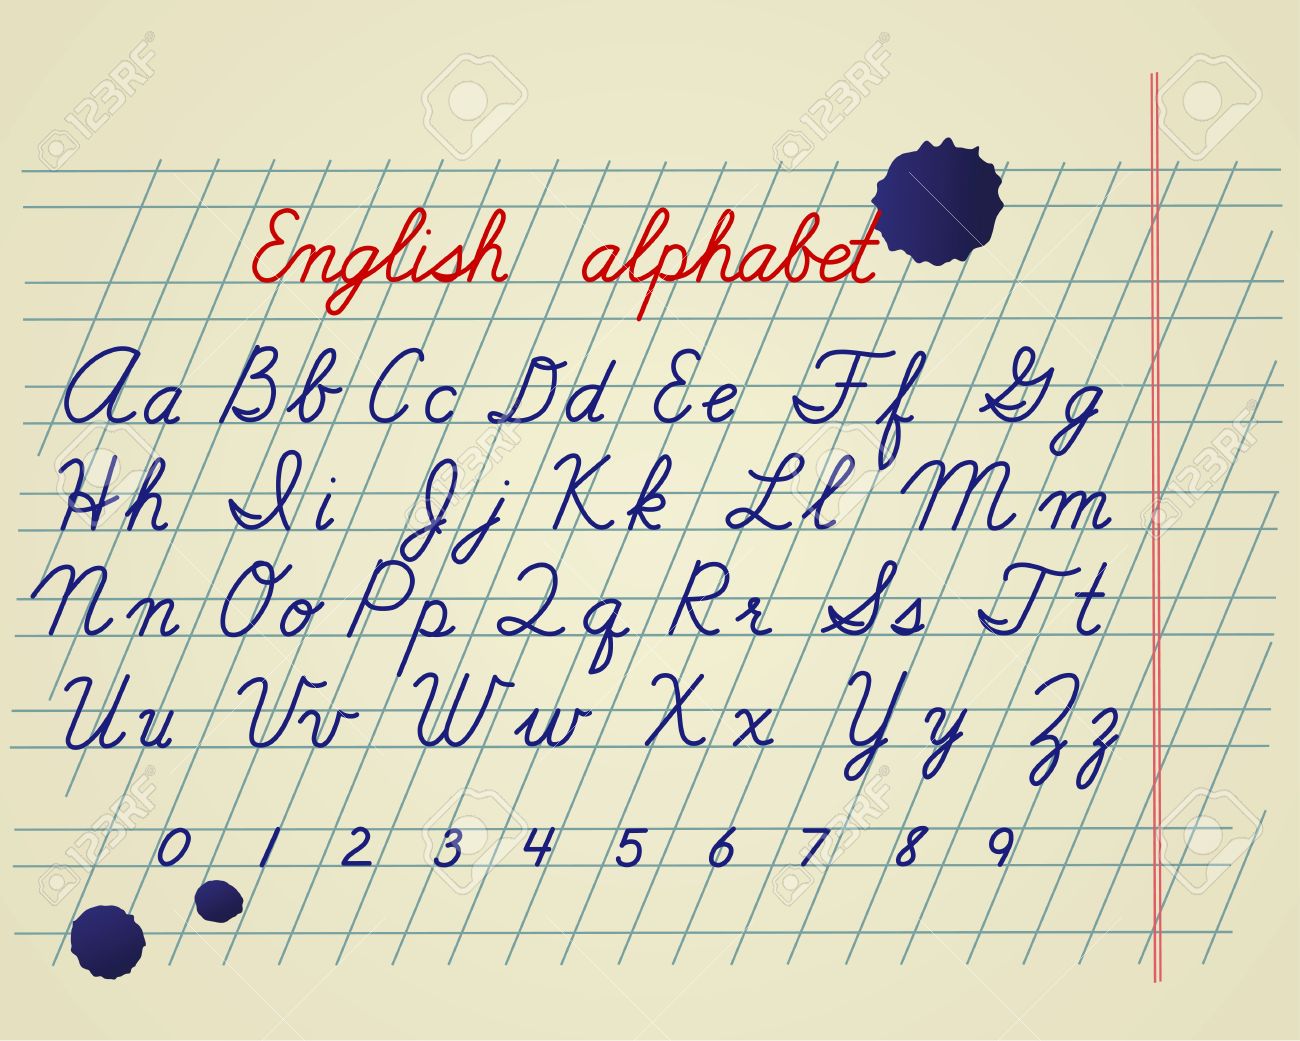 English alphabet
Aa Bb Cc Dd Ee Ff Gg
Hh Ii Jj Kk Ll Mm
Nn Oo Pp Qq Rr Ss Tt
Uu Vv Ww Xx Yy Zz
0 1 2 3 4 5 6 7 8 9
123RF
123RF
123RF
123RF
123RF
123RF